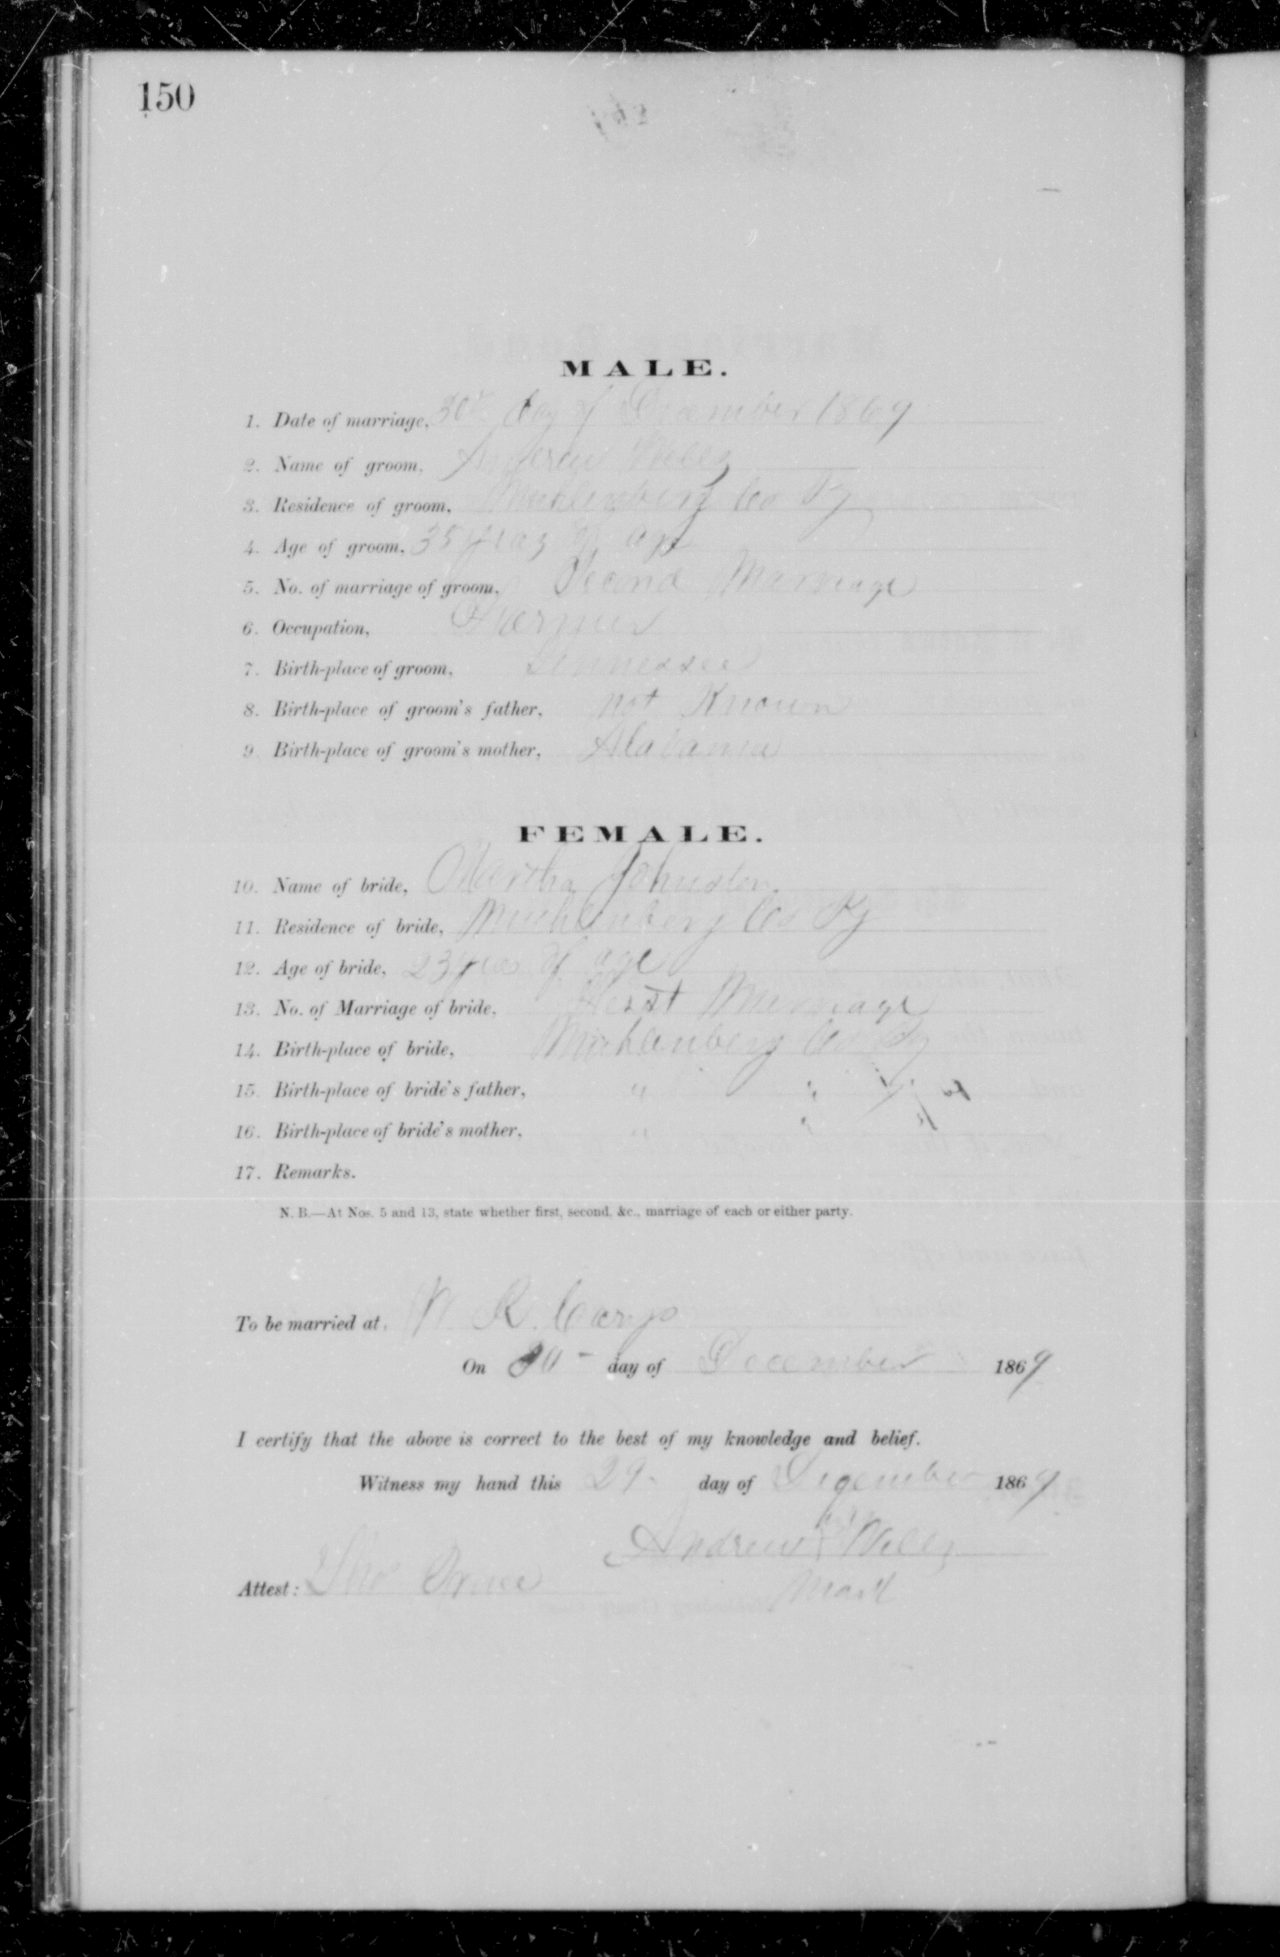 150
MALE.
1. Date of marriage, 30th day of December 1869
2. Name of groom, Andrew Wells
3. Residence of groom, Muhlenberg Co Ky
4. Age of groom, 35 years of age
5. No. of marriage of groom, Second Marriage
6. Occupation, Farmer
7. Birth-place of groom, Tennessee
8. Birth-place of groom's father, not Known
9. Birth-place of groom's mother, Alabama
FEMALE.
10. Name of bride, Martha Johnston
11. Residence of bride, Muhlenberg Co Ky
12. Age of bride, 23 years of age
13. No. of Marriage of bride, First Marriage
14. Birth-place of bride, Muhlenberg Co Ky
15. Birth-place of bride's father, " "
16. Birth-place of bride's mother, " "
17. Remarks.
N. B.—At Nos. 5 and 13, state whether first, second, &c., marriage of each or either party.
To be married at R.
On 30 - day of December 1869
I certify that the above is correct to the best of my knowledge and belief.
Witness my hand this 29 day of December 1869
Andrew Wells
Attest: Mark